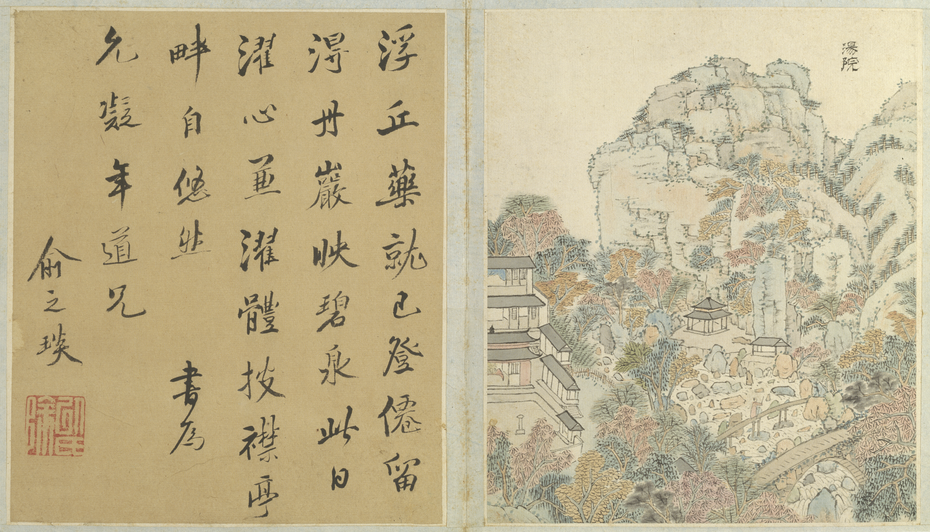 湯院
浮丘藥就已登僊留
淂丹巖映碧泉此日
濯心兼濯體披襟亭
畔自悠然 書為
允凝年道兄
俞之琰